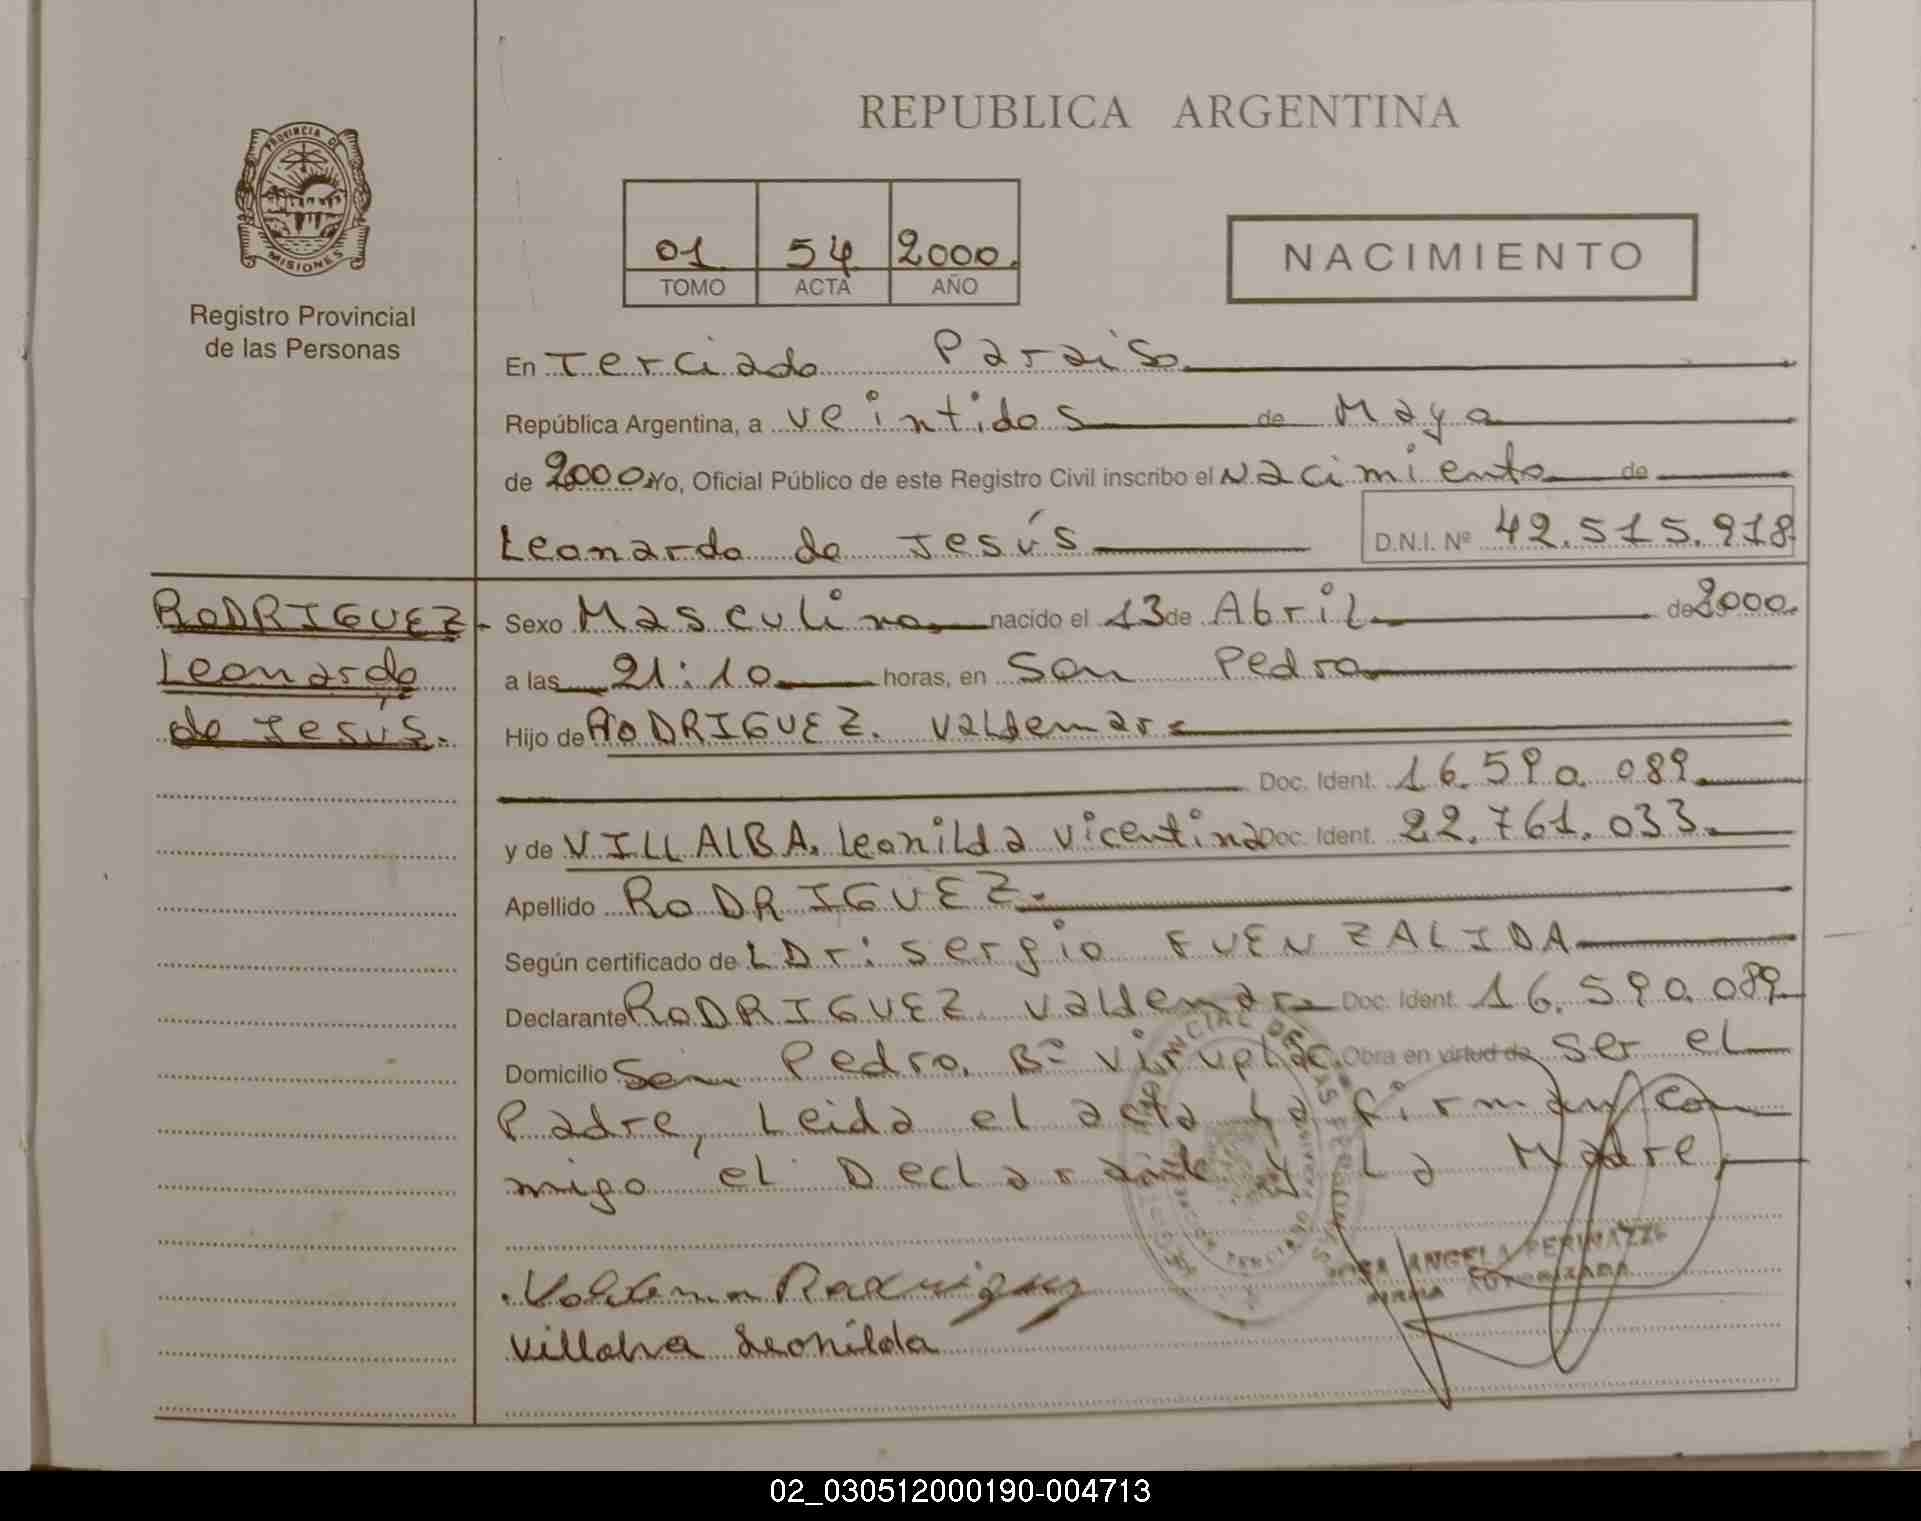 REPUBLICA ARGENTINA
PROVINCIA DE
MISIONES
Registro Provincial
de las Personas
01 54 2000.
TOMO ACTA AÑO
NACIMIENTO
En Terciado Paraiso
República Argentina, a veintidos de Mayo
de 2000. Yo, Oficial Público de este Registro Civil inscribo el Nacimiento de
Leonardo de Jesús D.N.I. Nº 42.515.918
RODRIGUEZ-
Leonardo
de Jesús.
Sexo Masculino nacido el 13 de Abril de 2000.
a las 21:10 horas, en San Pedro
Hijo de RODRIGUEZ. Valdemar
Doc. Ident. 16.590.089
y de VILLALBA. Leonilda Vicentina Doc. Ident. 22.761.033.
Apellido RODRIGUEZ.
Según certificado de LDr: Sergio FUENZALIDA
Declarante RODRIGUEZ Valdemar Doc. Ident. 16.590.089
Domicilio San Pedro. Bº Obra en virtud de ser el
Padre, Leida el acta La firman con
migo el Declarante y La Madre
ANGELA
FIRMA AUTORIZADA
Valdemar Rodriguez
Villalva Leonilda
02_030512000190-004713